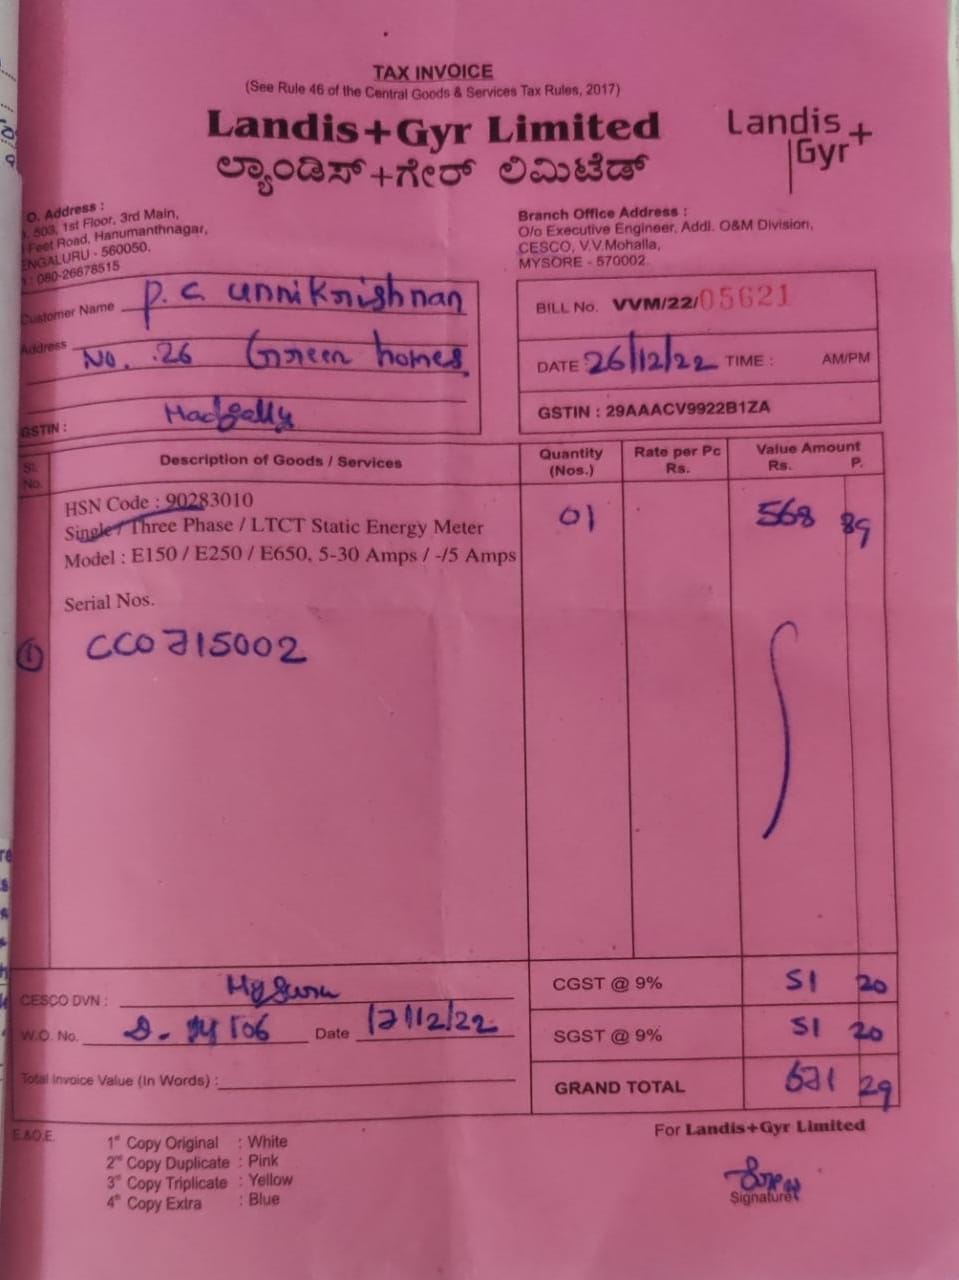 TAX INVOICE
(See Rule 46 of the Central Goods & Services Tax Rules, 2017)
Landis+Gyr Limited
ಲ್ಯಾಂಡಿಸ್+ಗೇರ್ ಲಿಮಿಟೆಡ್
Landis
Gyr+
O. Address :
503, 1st Floor, 3rd Main,
Feet Road, Hanumanthnagar,
ENGALURU - 560050.
: 080-26678515
Branch Office Address :
O/o Executive Engineer, Addl. O&M Division,
CESCO, V.V.Mohalla,
MYSORE - 570002.
Customer Name P. C Unnikrishnan
Address No. 26 Green homes,
GSTIN :
BILL No. VVM/22/05621
DATE : 26/12/22 TIME : AM/PM
GSTIN : 29AAACV9922B1ZA
Sl. No. Description of Goods / Services Quantity (Nos.) Rate per Pc Rs. Value Amount Rs. P.
HSN Code : 90283010
Single / Three Phase / LTCT Static Energy Meter 01 568 89
Model : E150 / E250 / E650, 5-30 Amps / -/5 Amps
Serial Nos.
① CC0715002
CESCO DVN : Mysuru
CGST @ 9% 51 20
W.O. No. Date 17/12/22
SGST @ 9% 51 20
Total Invoice Value (In Words) :
GRAND TOTAL 671 29
E.&O.E.
For Landis+Gyr Limited
1st Copy Original : White
2nd Copy Duplicate : Pink
3rd Copy Triplicate : Yellow
4th Copy Extra : Blue
Signature